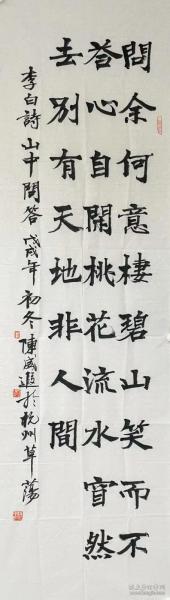 問余何意棲碧山笑而不
荅心自閑桃花流水窅然
去別有天地非人間
李白詩山中問答戊戌年初冬陳於杭州草蕩